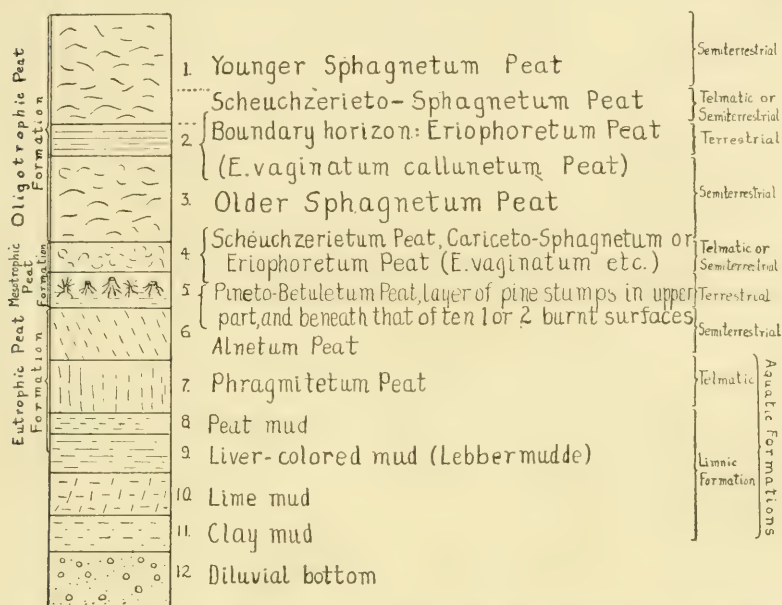 Oligotrophic Peat
Formation
Mesotrophic
Peat
Formation
Eutrophic Peat
Formation
1. Younger Sphagnetum Peat
Scheuchzerieto-Sphagnetum Peat
2. Boundary horizon: Eriophoretum Peat
(E.vaginatum callunetum Peat)
3. Older Sphagnetum Peat
4. Scheuchzerietum Peat, Cariceto-Sphagnetum or
Eriophoretum Peat (E.vaginatum etc.)
5. Pineto-Betuletum Peat, layer of pine stumps in upper
part, and beneath that often 1 or 2 burnt surfaces
6 Alnetum Peat
7. Phragmitetum Peat
8 Peat mud
9. Liver-colored mud (Lebbermudde)
10. Lime mud
11. Clay mud
12. Diluvial bottom
Semiterrestrial
Telmatic or
Semiterrestrial
Terrestrial
Semiterrestrial
Telmatic or
Semiterrestrial
Terrestrial
Semiterrestrial
Telmatic
Limnic
Formation
Aquatic Formations